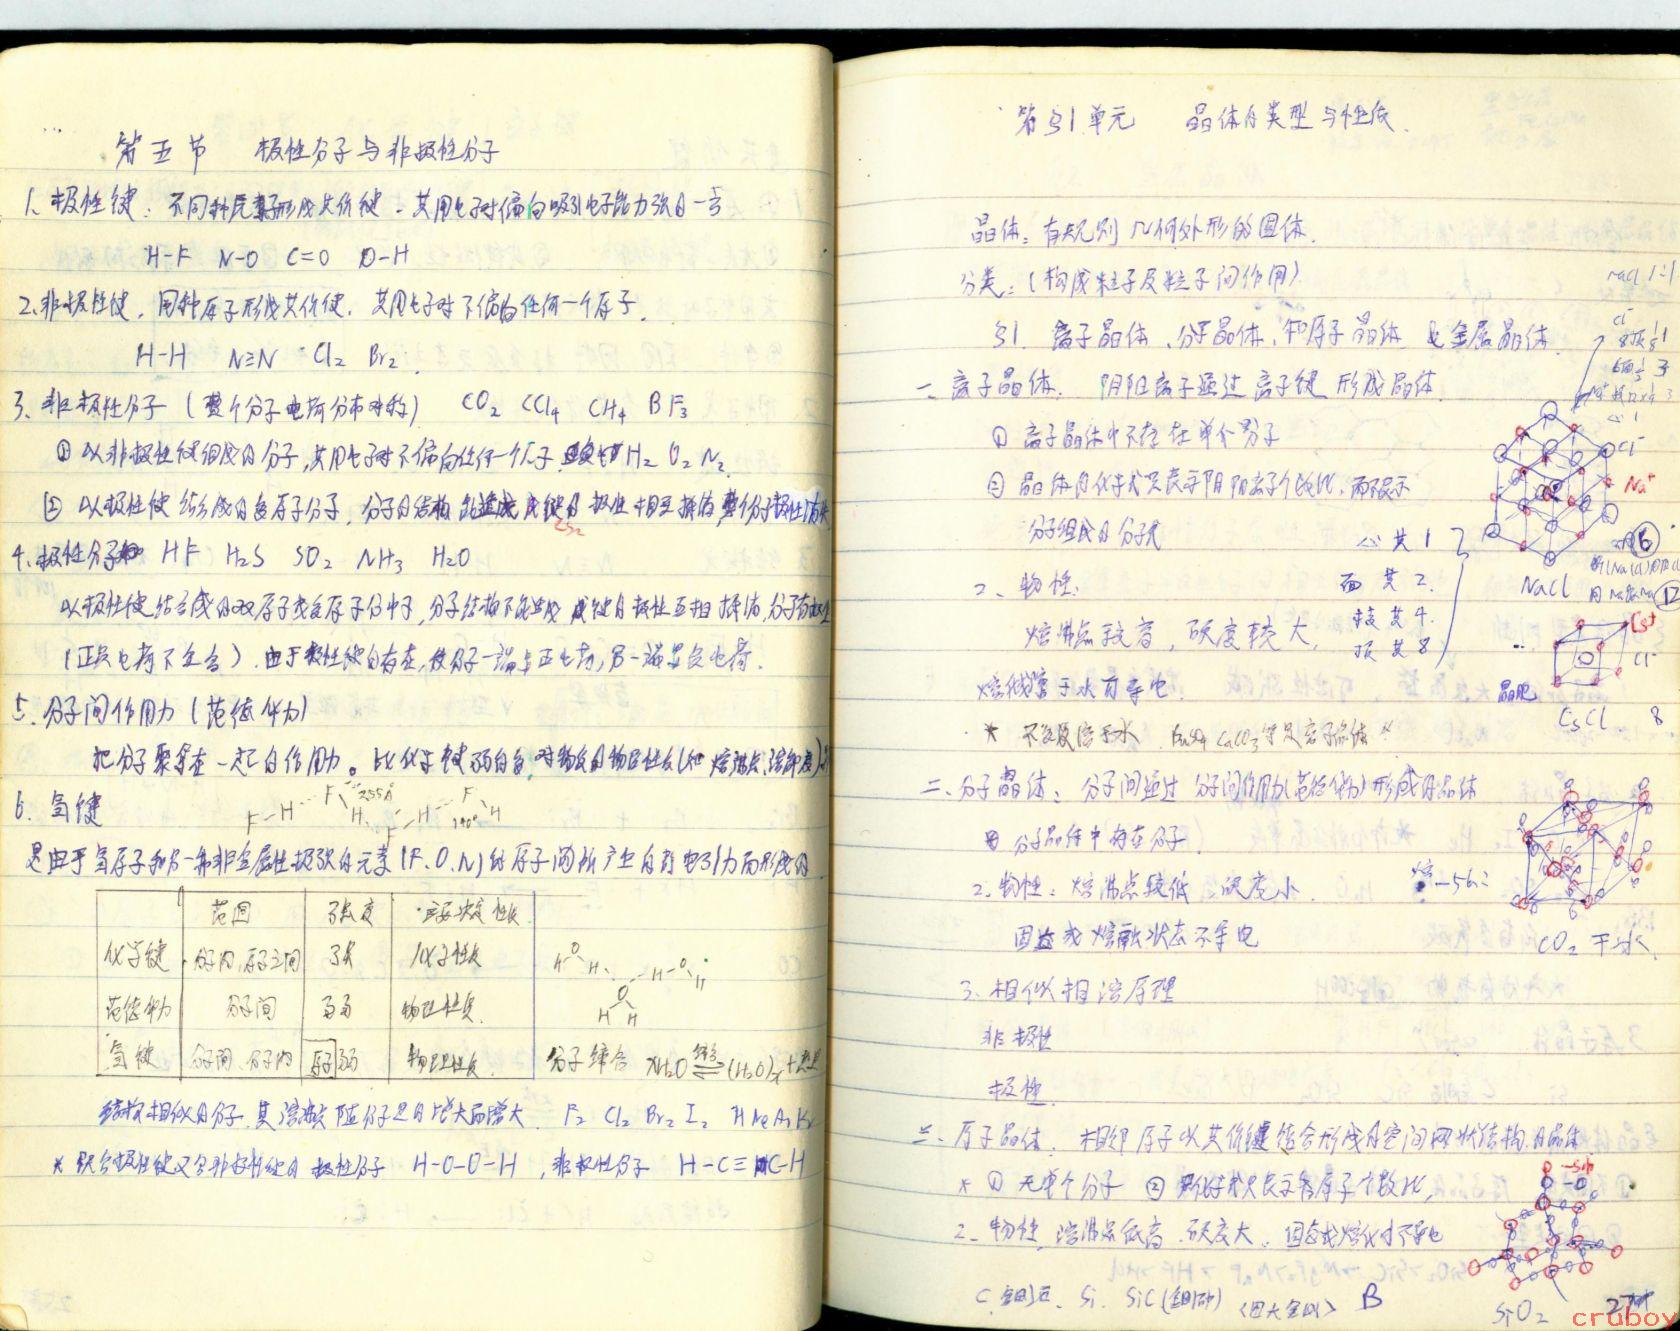 第五节 极性分子与非极性分子
1、极性键：不同种元素原子形成共价键，共用电子对偏向吸引电子能力强的一方
H-F N-O C=O O-H
2、非极性键，同种原子形成共价键，共用电子对不偏向任何一个原子.
H-H N≡N Cl₂ Br₂
3、非极性分子（整个分子电荷分布对称） CO₂ CCl₄ CH₄ BF₃
① 以非极性键组成的分子，共用电子对不偏向任何一个原子， H₂ O₂ N₂
② 以极性键结合成的多原子分子，分子的结构能造成键的极性相互抵消，整个分子极性消失
CS₂
4、极性分子 HF H₂S SO₂ NH₃ H₂O
以极性键结合成的双原子或多原子分子中，分子结构不能造成键的极性互相抵消，分子有极性
（正负电荷不重合）. 由于极性键的存在，使分子一端带正电荷，另一端带负电荷.
5、分子间作用力（范德华力）
把分子聚集在一起的作用力。比化学键弱的多，对物质的物理性质（如熔沸点、溶解度）
6、氢键
F-H F 255 H F H F 140° H
是由于氢原子和另一非金属性极强的元素（F、O、N）的原子间所产生的静电引力而形成的
范围 强度 主要决定性质
化学键 分子内，原子之间 强 化学性质
范德华力 分子间 弱 物理性质.
氢键 分子间、分子内 弱 物理性质
H O H H-O H O H H
分子缔合 xH₂O ⇌ (H₂O)ₓ + 热量
结构相似的分子，其熔沸点随分子量的增大而增大 F₂ Cl₂ Br₂ I₂ He Ne Ar Kr
* 既含极性键又含非极性键的极性分子 H-O-O-H ，非极性分子 H-C≡C-H
第51单元 晶体的类型与性质
晶体：有规则几何外形的固体.
分类：（构成粒子及粒子间作用）
NaCl 1:1
51. 离子晶体、分子晶体、和原子晶体 金属晶体
Cl⁻
一、离子晶体. 阴阳离子通过离子键形成晶体
① 离子晶体中不存在单个分子
Cl⁻
② 晶体的化学式只表示阴阳离子个数比，而不表示
分子组成的分子式
Na⁺
心 共 1
面 共 2.
棱 共 4.
顶 共 8
6
NaCl
12
2、物性.
熔沸点较高，硬度较大
熔化或溶于水可导电
Cs⁺
Cl⁻
晶胞
CsCl 8
* BaSO₄ CaCO₃ 等是离子晶体
二、分子晶体：分子间通过分子间作用力（范德华力）形成的晶体
① 分子晶体中存在分子.
2、物性：熔沸点较低 硬度小.
固态或熔融状态不导电
CO₂ 干冰
3、相似相溶原理
非极性
极性
三、原子晶体. 相邻原子以共价键结合形成的空间网状结构的晶体
* ① 无单个分子 ② 化学式只表示各原子个数比，
2、物性，熔沸点高 硬度大. 固态或熔化时不导电
C 金刚石 Si、SiC（金刚砂） B
SiO₂
cruboy